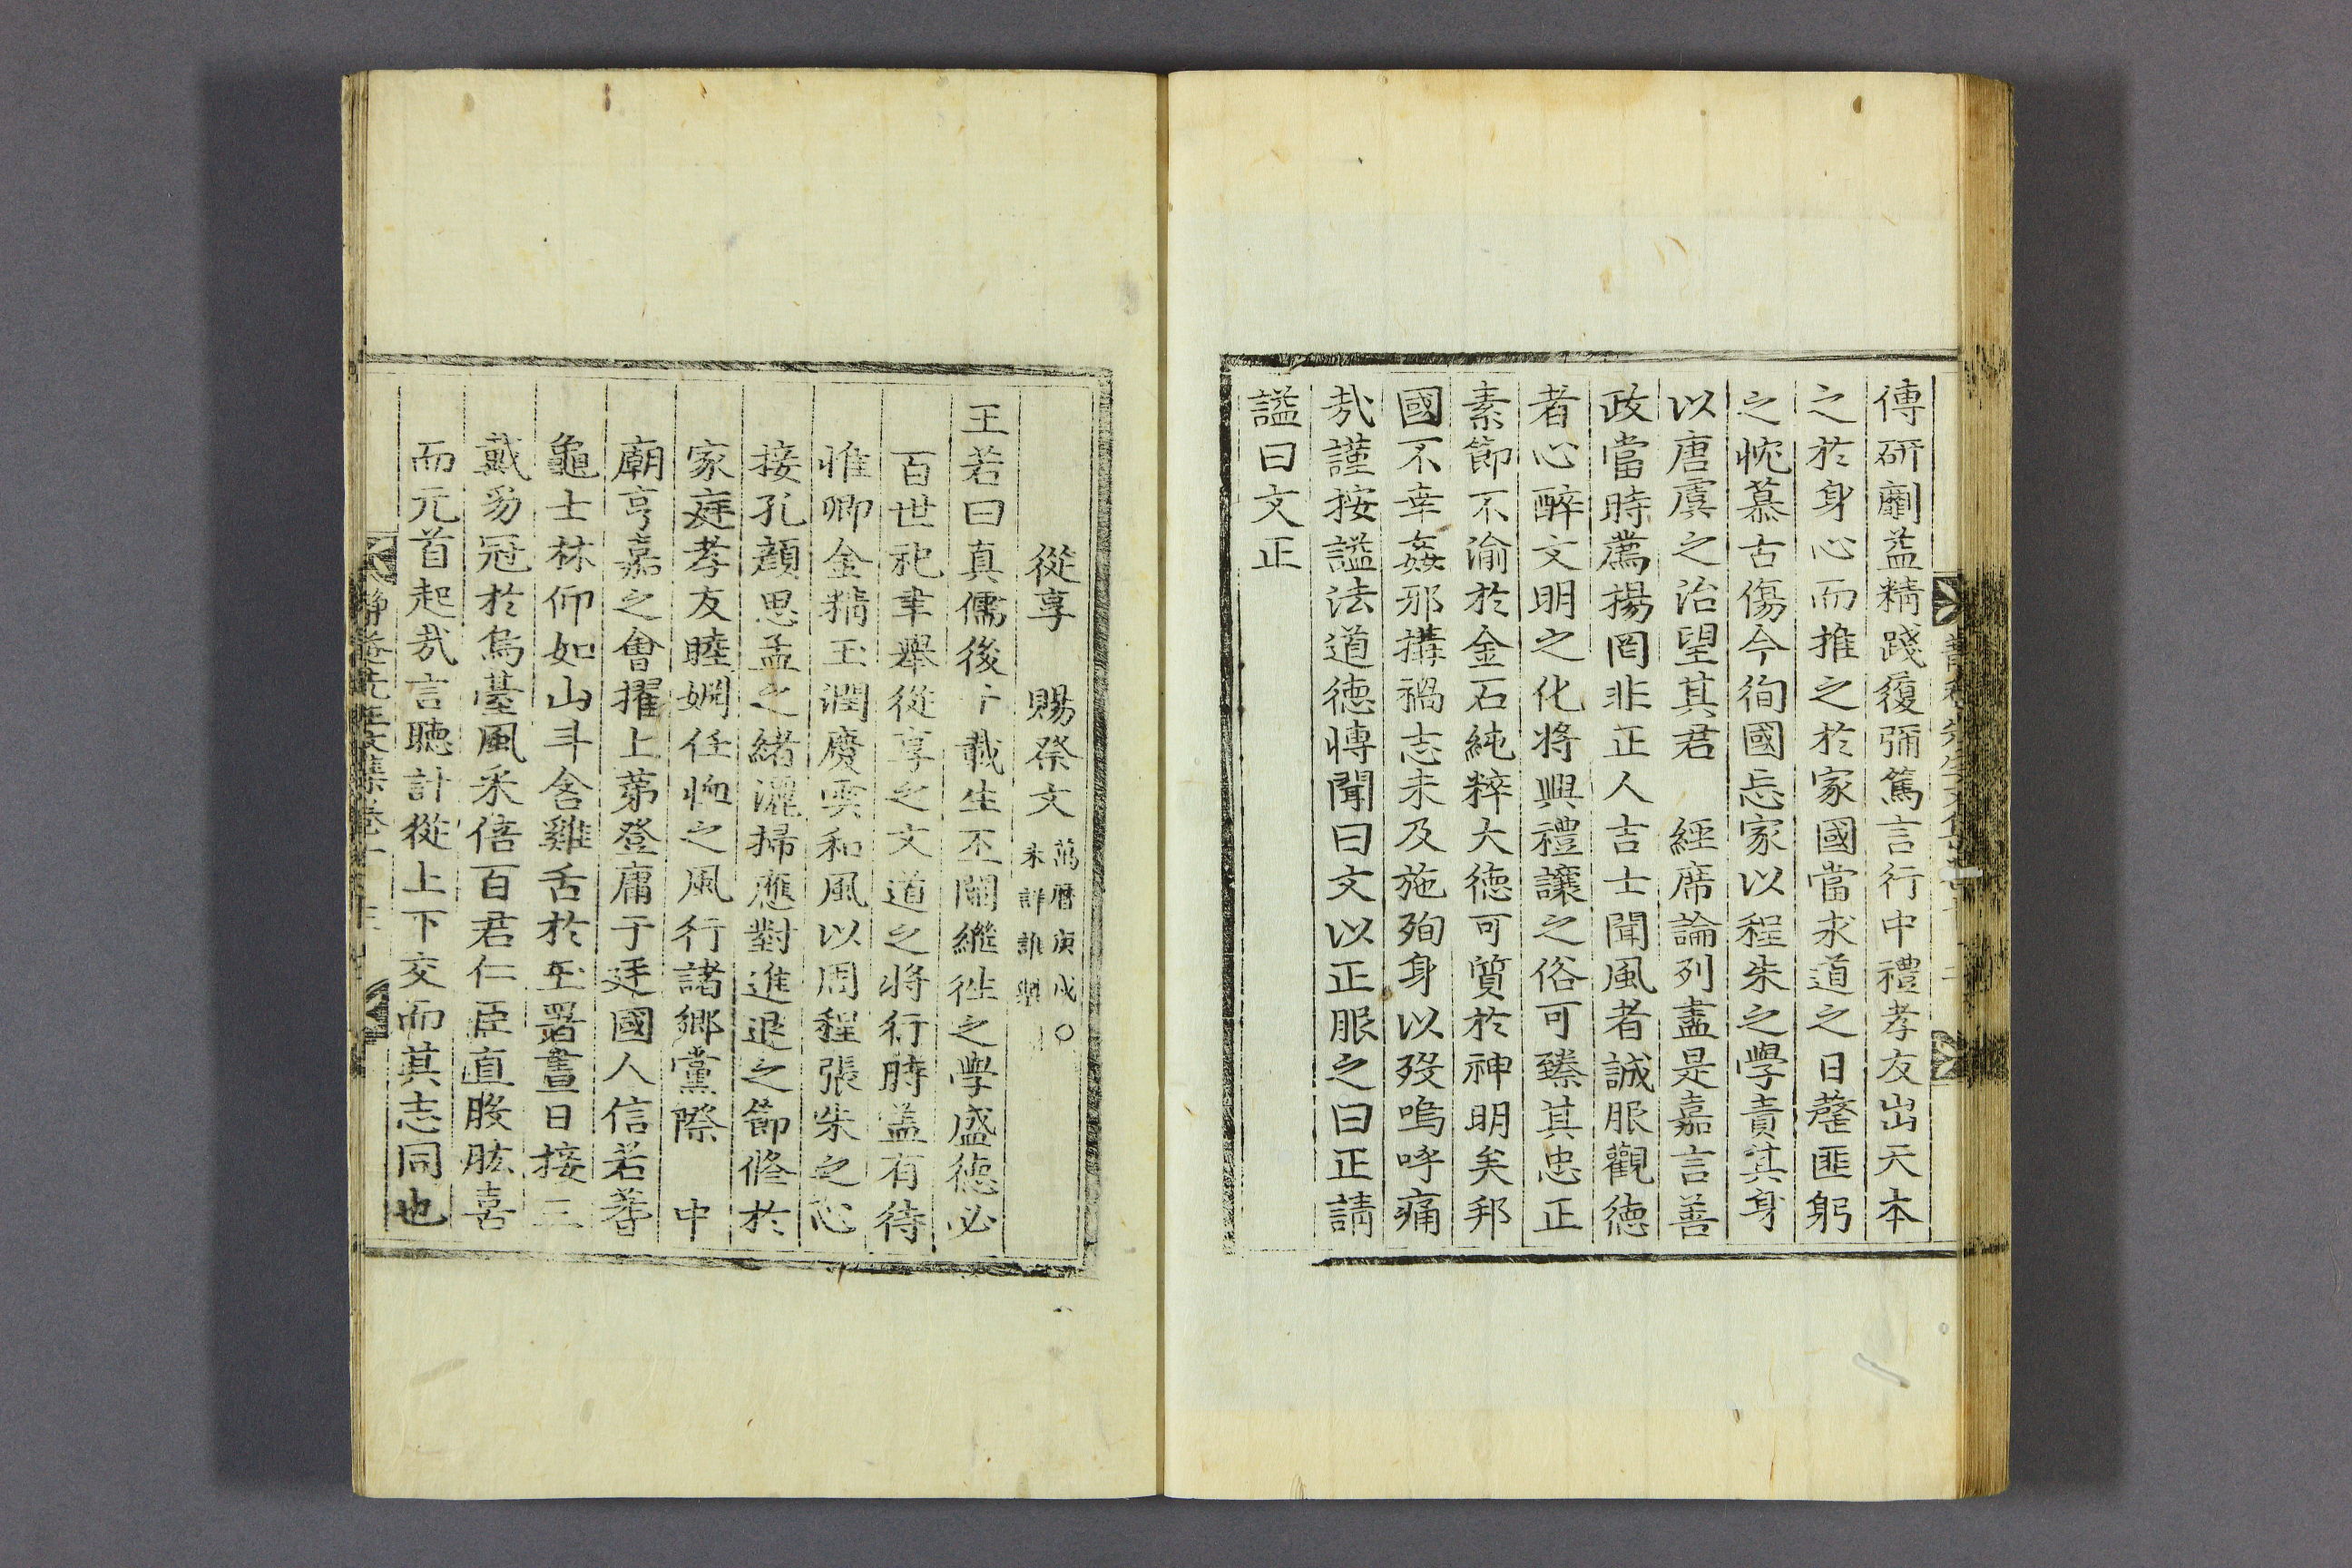 傳研劘益精踐復彌篤言行中禮孝友出天本
之於身心而推之於家國當求道之日蹇匪躬
之忱慕古傷今徇國忘家以程朱之學責其身
以唐虞之治望其君 經席論列盡是嘉言善
政當時薦揚罔非正人吉士聞風者誠服觀德
者心醉文明之化將興禮讓之俗可臻其忠正
素節不渝於金石純粹大德可質於神明矣邦
國不幸姦邪搆禍志未及施殉身以歿嗚呼痛
㢤謹按謚法道德博聞曰文以正服之曰正請
謚曰文正
從享 賜祭文 萬曆庚戌○
未詳誰製
王若曰真儒後千載生丕闡繼徃之學盛德必
百世祀聿舉從享之文道之將行時盖有待
惟卿金精玉潤慶雲和風以周程張朱之心
接孔顔思孟之緒灑掃應對進退之節修於
家庭孝友睦婣任恤之風行諸鄉黨際 中
廟亨嘉之會擢上第登庸于廷國人信若蓍
龜士林仰如山斗含雞舌於玉署晝日接三
戴豸冠於烏臺風采倍百君仁臣直股肱喜
而元首起㢤言聽計從上下交而其志同也
静菴先生文集卷